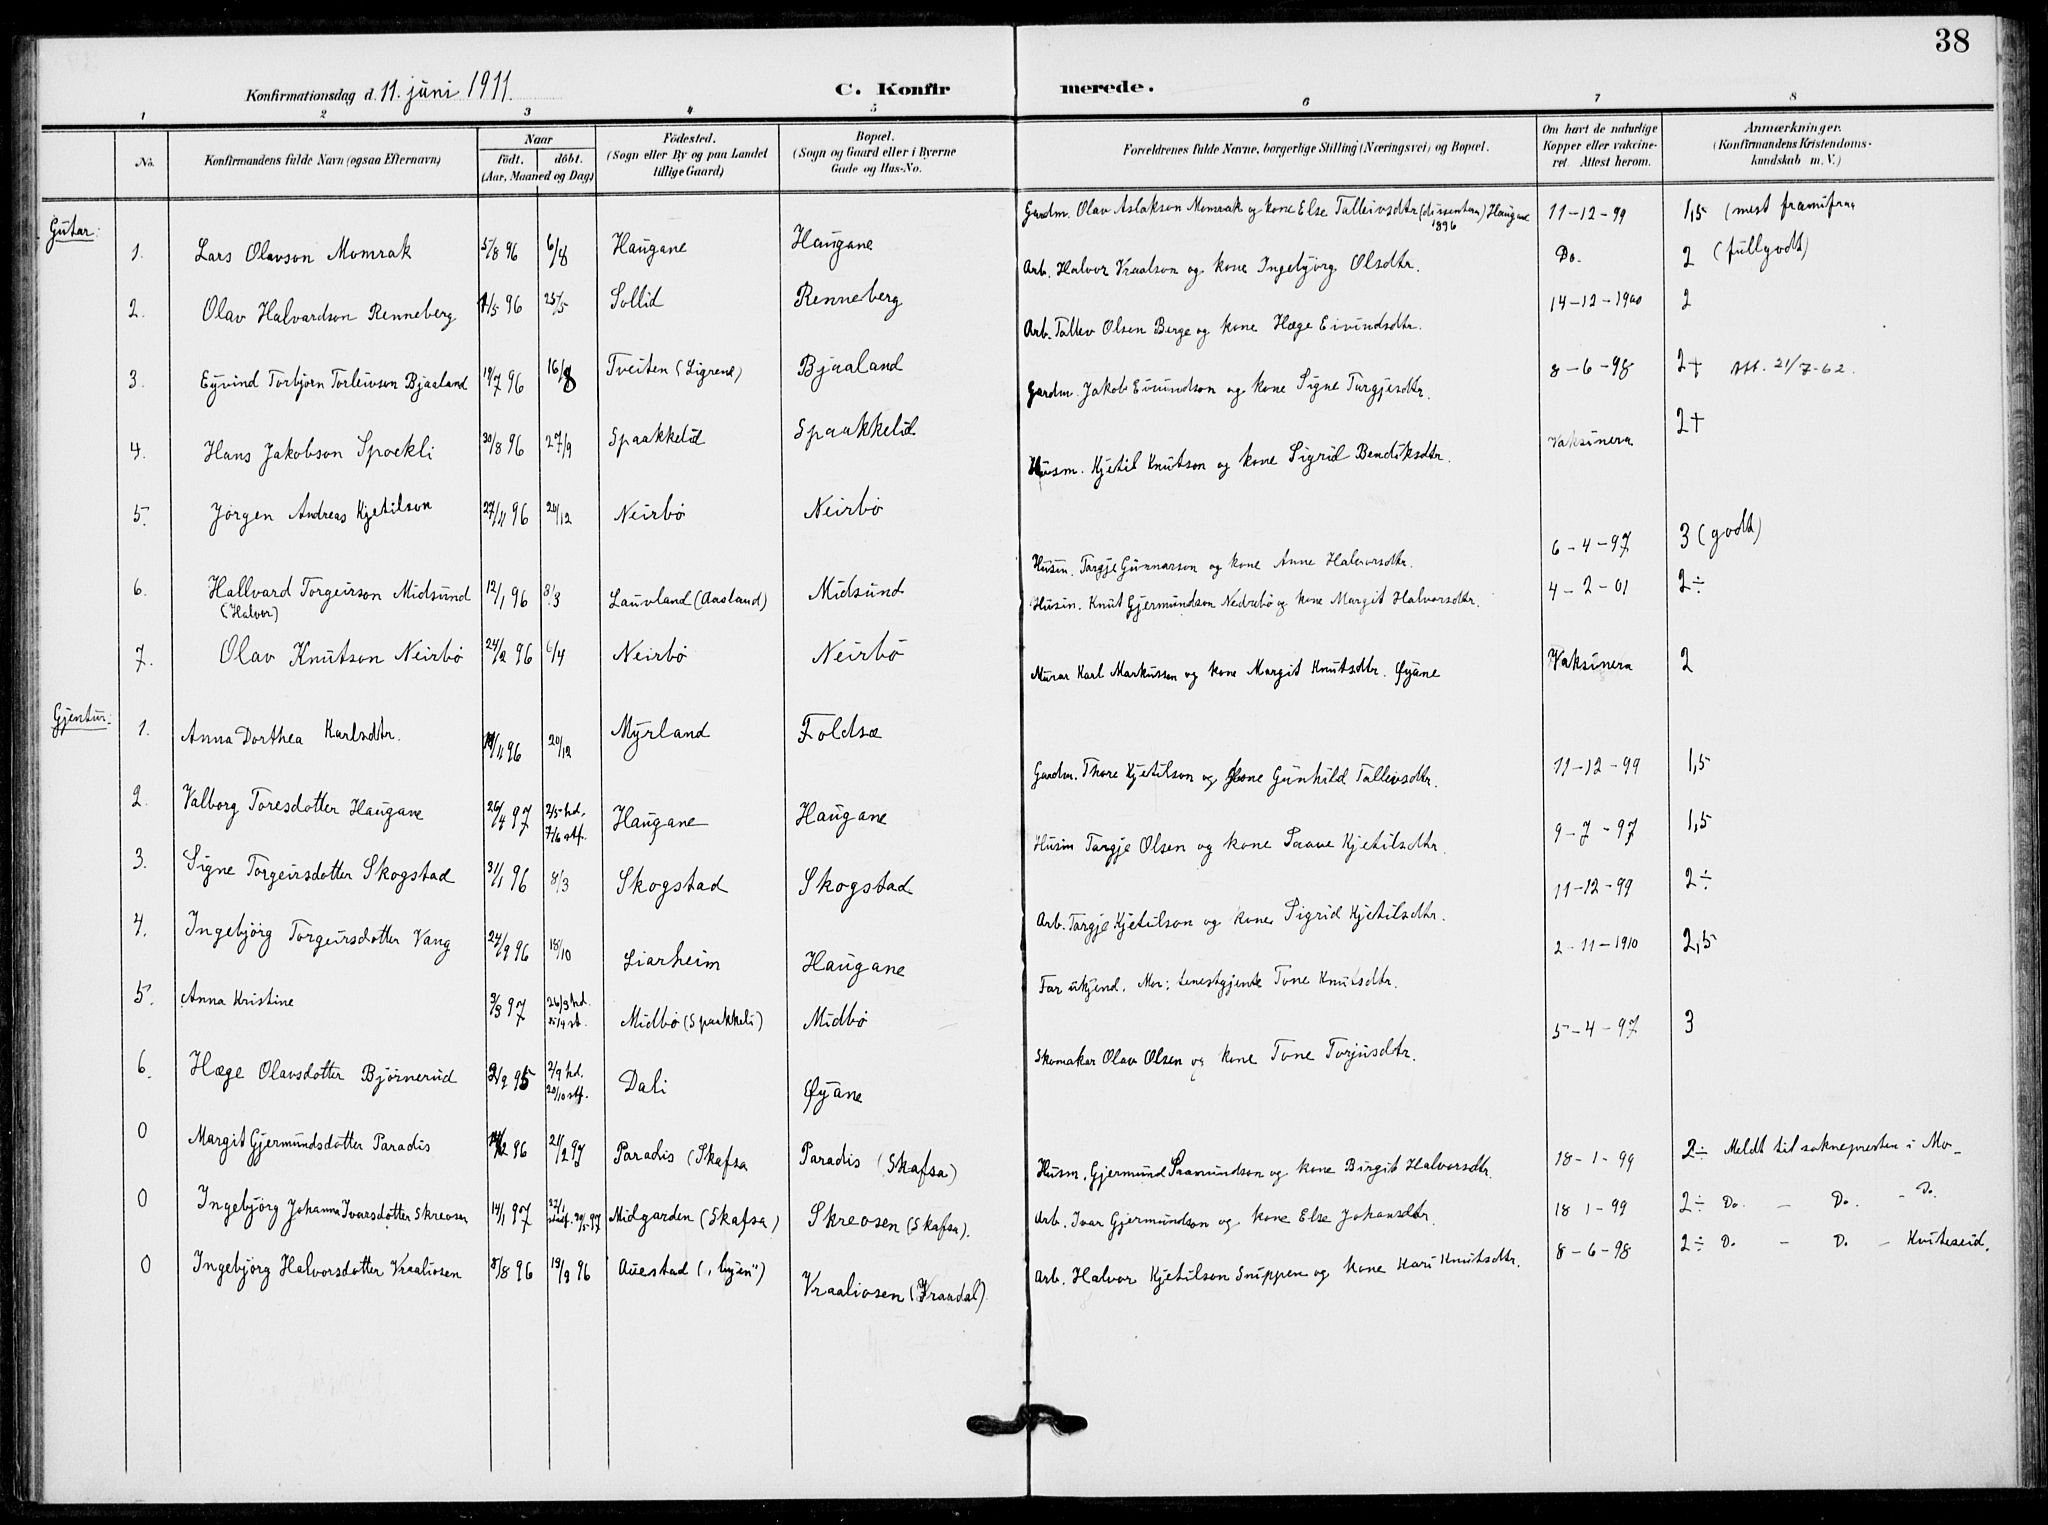 38
Konfirmationsdag d. 11. juni 1911.
C. Konfirmerede.
1 2 3 4 5 6 7 8
No. Konfirmandens fulde Navn (ogsaa Efternavn) Naar født. døbt. (Aar, Maaned og Dag) Födested. (Sogn eller By og paa Landet tillige Gaard) Bopæl. (Sogn og Gaard eller i Byerne Gade og Hus-No. Forældrenes fulde Navne, borgerlige Stilling (Næringsvei) og Bopæl. Om havt de naturlige Kopper eller vakcineret. Attest herom. Anmærkninger. (Konfirmandens Kristendomskundskab m. V.)
Gutar:
1. Lars Olavson Momrak 5/8 96 6/8 Haugane Haugane Gardm. Olav Aslakson Momrak og kone Else Talleivsdtr (dissentera) Haugane 1896 11-12-99 1,5 (mest framifraa
2. Olav Halvardson Renneberg 1/5 96 25/5 Sollid Renneberg Arb. Halvor Vraalson og kone Ingebjörg Olsdtr. Do. 2 (fullgodt)
3. Eyvind Torbjörn Torleivson Bjaaland 19/7 96 16/8 Tveiten (Ligrene) Bjaaland Arb. Tallev Olsen Berge og kone Hæge Eivindsdtr. 14-12-1900 2
4. Hans Jakobson Spockli 30/8 96 27/9 Spaakkelid Spaakkelid Gardm. Jakob Eivundson og kone Signe Targjesdtr. 8-6-98 2+ Att. 21/7-62.
5. Jørgen Andreas Kjetilson 27/11 96 20/12 Neirbö Neirbö Husm. Kjetil Knutson og kone Sigrid Bendiksdtr. Vaksinera 2+
6. Hallvard Torgeirson Midsund (Halvor) 12/1 96 8/3 Lauvland (Aasland) Midsund Husm. Targje Gunnarson og kone Anne Halvorsdtr. 6-4-97 3 (godt)
7. Olav Knutson Neirbö 24/2 96 6/4 Neirbö Neirbö Husm. Knut Gjermundson Nedrebö og kone Margit Halvorsdtr. 4-2-01 2÷
Gjentur.
1. Anna Dorthea Karlsdtr. 19/11 96 20/12 Myrland Foldsæ Murar Karl Markussen og kone Margit Knutsdtr. Øyane Vaksinera 2
2. Valborg Toresdotter Haugane 26/4 97 2/5 hd. 7/6 stf. Haugane Haugane Gardm. Thore Kjetilson og kone Gunhild Tallevsdtr. 11-12-99 1,5
3. Signe Torgeirsdotter Skogstad 31/1 96 8/3 Skogstad Skogstad Husm Targje Olsen og kone Saave Kjetilsdtr. 9-7-97 1,5
4. Ingebjörg Torgeirsdotter Vang 24/9 96 18/10 Liarheim Haugane Arb. Targje Kjetilson og kone Sigrid Kjetilsdtr. 11-12-99 2÷
5. Anna Kristine 3/3 97 26/3 hd. 25/4 st. Midbö (Spaakkeli) Midbö Far ukjend. Mor: tenestgjente Tone Knutsdtr. 2-11-1910 2,5
6. Hæge Olavsdotter Bjørnerud 2/9 95 2/9 hd. 20/10 stf. Dali Øyane Skomakar Olav Olsen og kone Tone Torjusdtr. 5-4-97 3
0 Margit Gjermundsdotter Paradis 14/12 96 21/2 97 Paradis (Skafsa Paradis (Skafsa) Husm. Gjermund Saamundson og kone Birgit Halvorsdtr. 18-1-99 2÷ Meldt til soknepresten i Mo-
0 Ingebjörg Johanna Ivarsdotter Skreosen 14/1 97 27/1 Midgarden (Skafsa) Skreosen (Skafsa). Arb. Ivar Gjermundson og kone Else Johansdtr. 18 1-99 2÷ Do. - Do. - Do.
0 Ingebjörg Halvorsdotter Vraaliosen 8/8 96 19/9 96 Auestad („byen") Vraaliosen (Vraadal). Arb. Halvor Kjetilson Snippen og kone Kari Knutsdtr. 8-6-98 2÷ Do - Do. - Kviteseid.